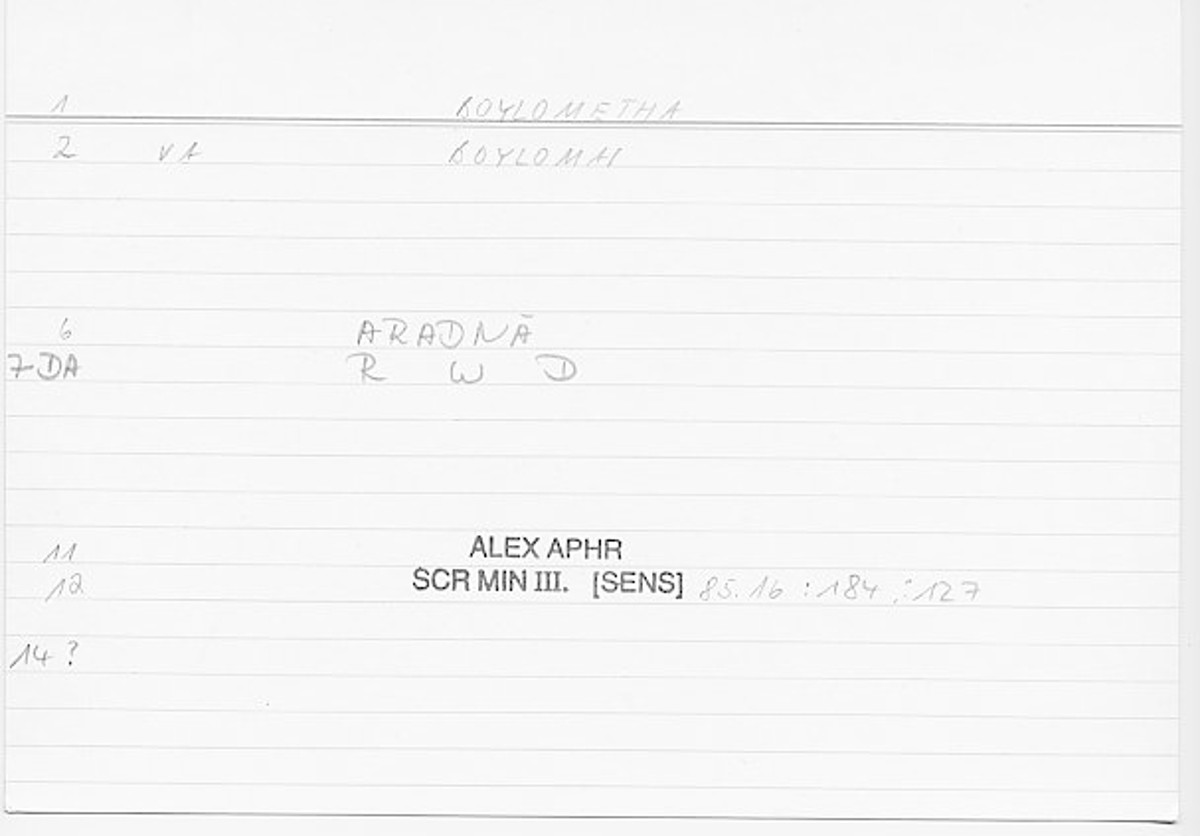 1 BOYLOMETHA
2 VA BOYLOMAI
6 ARADNĀ
7 DA R W D
11 ALEX APHR
12 SCR MIN III. [SENS] 85.16 :184 :127
14 ?